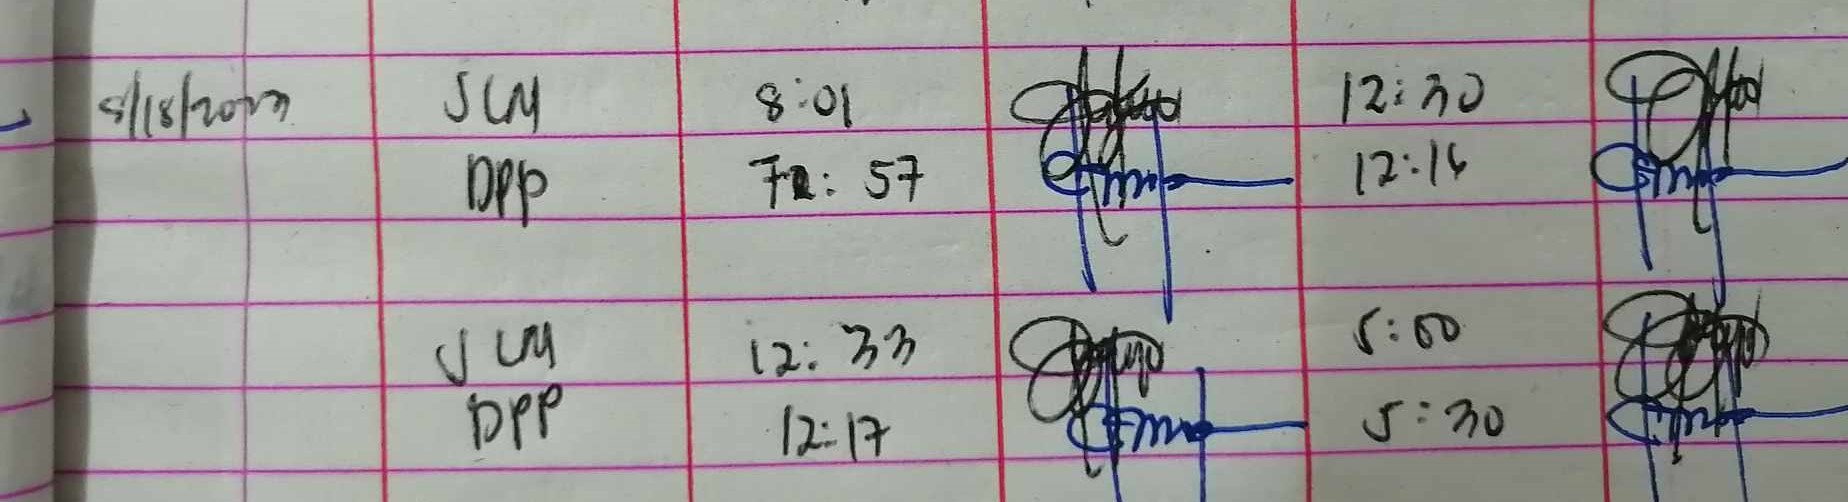 8/18/2023 JLM 8:01 12:30
DPP 7: 57 12:16
JLM 12: 33 5:00
DPP 12:17 5:30